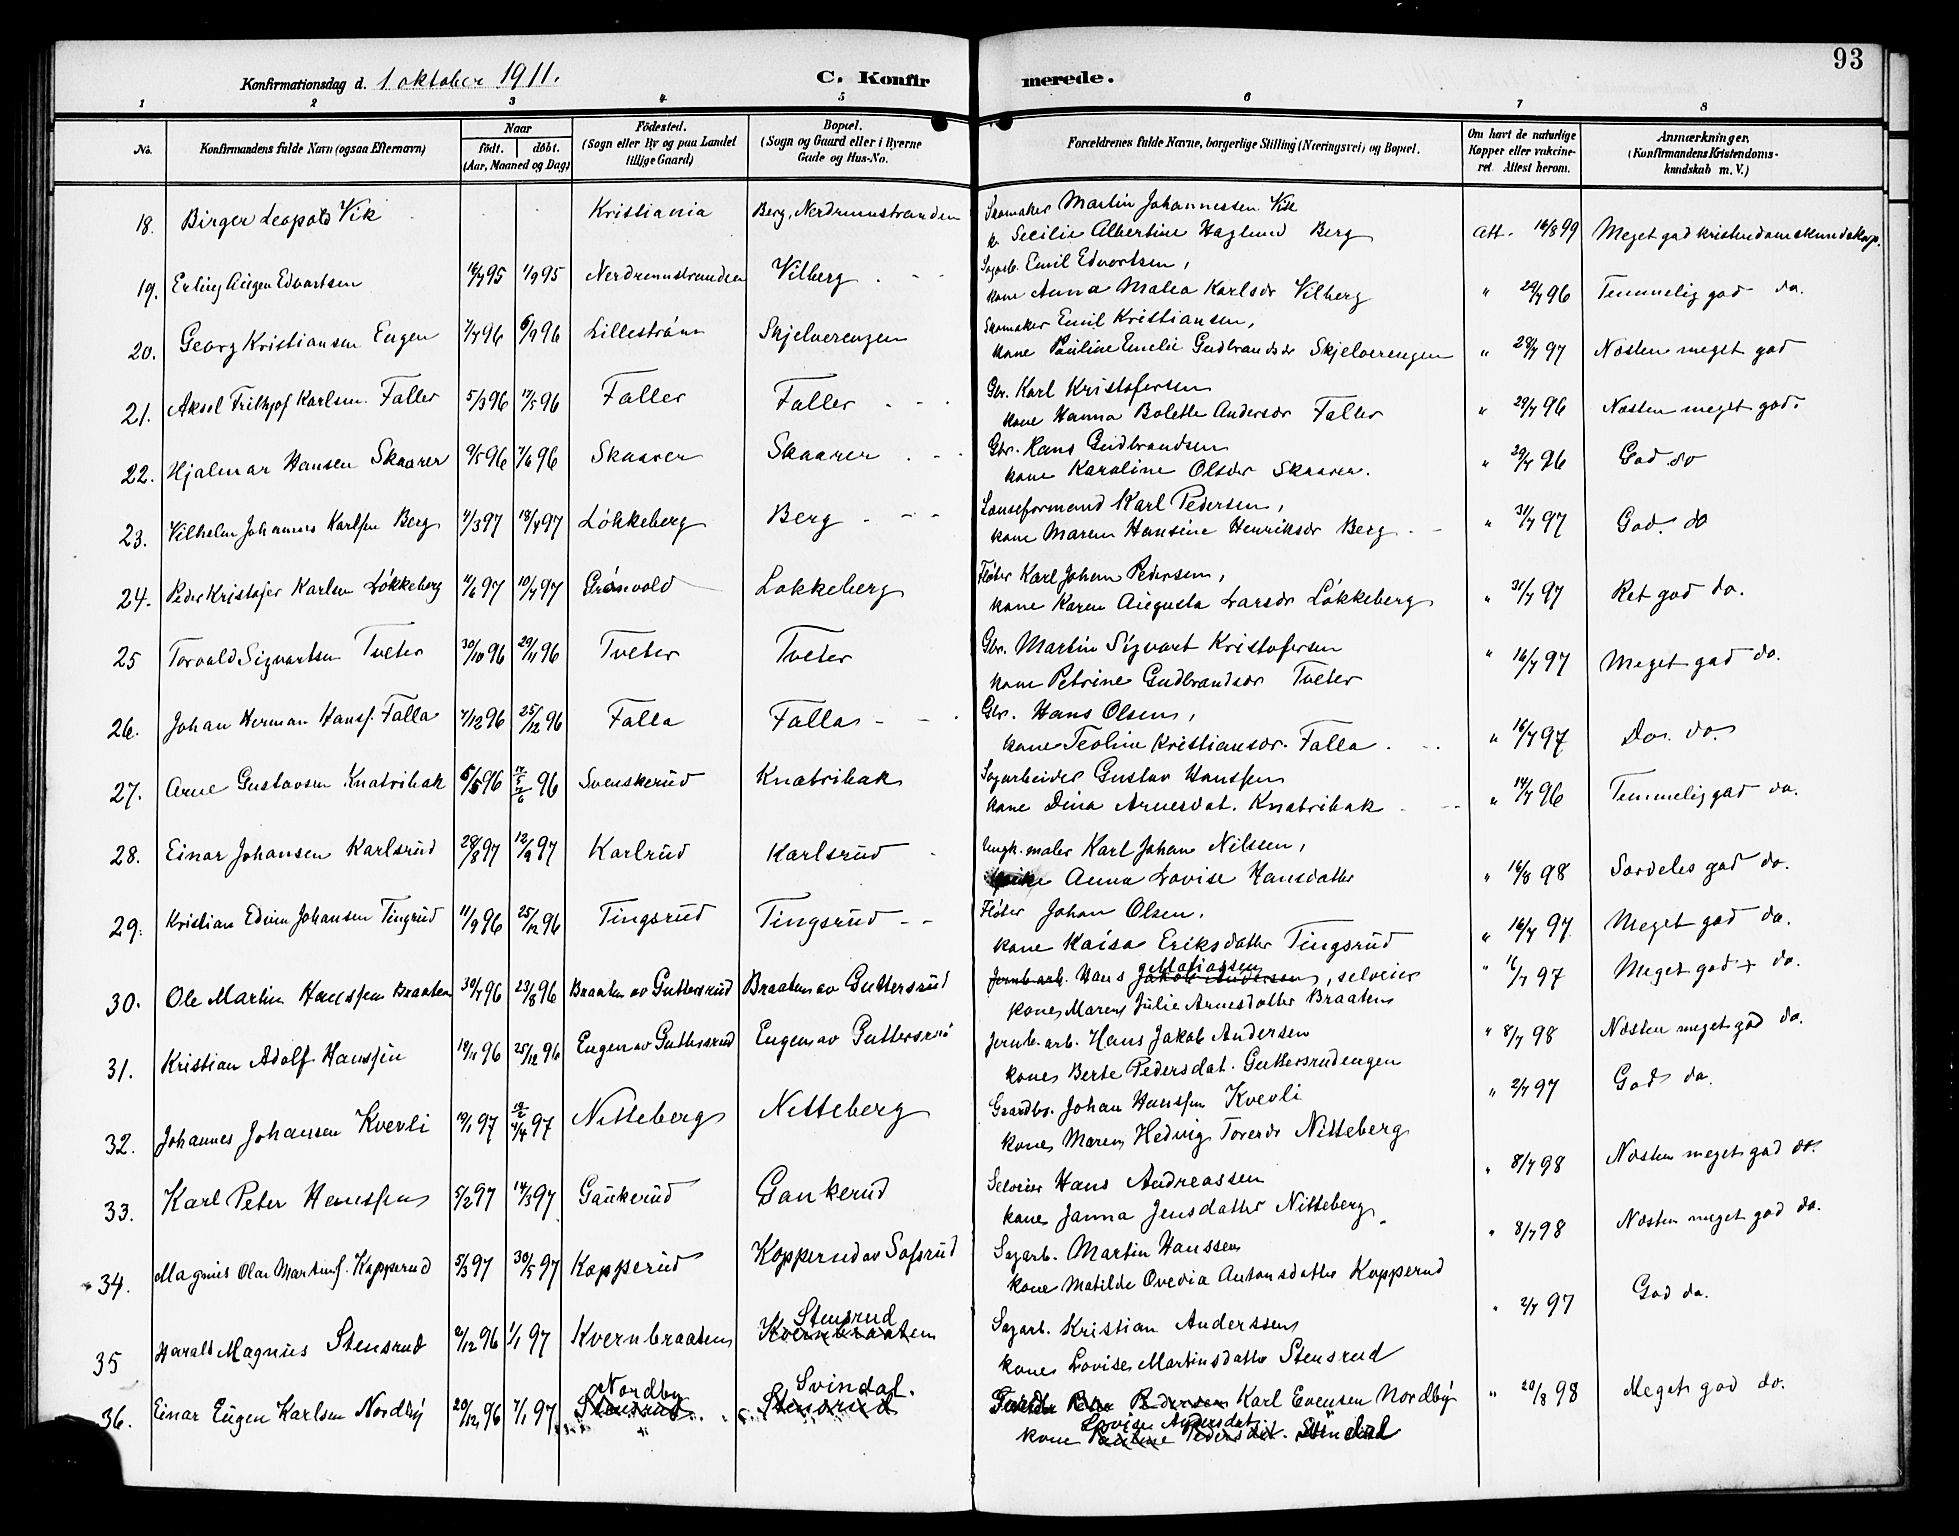 93
Konfirmationsdag d. 1 oktober 1911. C. Konfirmerede.
1 2 3 4 5 6 7 8
No. Konfirmandens fulde Navn (ogsaa Efternavn) Naar født. døbt. (Aar, Maaned og Dag) Födested. (Sogn eller By og paa Landet tillige Gaard) Bopæl. (Sogn og Gaard eller i Byerne Gade og Hus-No. Forældrenes fulde Navne, borgerlige Stilling (Næringsvei) og Bopæl. Om havt de naturlige Kopper eller vaksineret. Attest herom. Anmærkninger. (Konfirmandens Kristendomskundskab m. V.)
18. Birger Leopold Vik Kristiania Berg, Nerdrumstranden Skomaker Martin Johannessen Vik
k. Secilie Albertine Haglund Berg Att. 16/8 99 Meget god kristendomskundskap.
19. Erling Eugen Edvartsen 16/7 95 1/9 95 Nerdrumstranden Vilberg Sagarb. Emil Edvartsen,
kone Anna Malea Karlsdr Vilberg " 29/7 96 Temmelig god do.
20. Georg Kristiansen Engen 7/7 96 6/9 96 Lillestrøm Skjelverengen Skomaker Emil Kristiansen,
kone Pauline Emelie Gudbrandsdr Skjelverengen " 28/7 97 Næsten meget god
21. Aksel Frithjof Karlsen Faller 5/3 96 17/5 96 Faller Faller Gbr. Karl Kristofersen
kone Hanna Bolette Andersdr Faller " 29/7 96 Næsten meget god.
22. Hjalmar Hansen Skaarer 9/5 96 7/6 96 Skaarer Skaarer Gbr. Hans Gudbrandsen
kone Karoline Olsdr Skaarer. " 29/7 96 God do
23. Vilhelm Johannes Karlsen Berg 4/3 97 18/4 97 Løkkeberg Berg Lenseformand Karl Pedersen,
kone Maren Hansine Henriksdr Berg " 31/7 97 God. do
24. Peder Kristofer Karlsen Løkkeberg 11/6 97 10/7 97 Grønvold Løkkeberg Fløter Karl Johan Pedersen,
kone Karen Augusta Larsdr Løkkeberg " 31/7 97 Ret god do.
25 Torvald Sigvartsen Tveter 30/10 96 29/11 96 Tveter Tveter Gbr. Martin Sigvart Kristofersen
kone Petrine Gudbrandsdr Tveter " 16/7 97 Meget god do.
26. Johan Herman Hansf. Falla 7/12 96 25/12 96 Falla Falla Gbr. Hans Olsen,
kone Teoline Kristiansdr. Falla " 16/7 97 Do. do.
27. Arne Gustavsen Knatribak 5/5 96 17/5 7/6 96 Svenskerud Knatribak Sagarbeider Gustav Hanssen
kone Dina Arnesdat. Knatribak " 14/7 96 Temmelig god do.
28. Einar Johansen Karlsrud 28/8 97 12/9 97 Karlrud Karlsrud maler Karl Johan Nilsen,
Anna Lovise Hansdatter " 16/8 98 Særdeles god do.
29. Kristian Edvin Johansen Tingsrud 11/9 96 25/12 96 Tingsrud Tingsrud Fløter Johan Olsen,
kone Kaisa Eriksdatter Tingsrud " 16/7 97 Meget god do.
30. Ole Martin Hanssen Braaten 30/7 96 23/8 96 Braaten av Guttersrud Braaten av Guttersrud Jernb. arb. Hans Jakob Andersen Matiassen, selveier
kone Maren Julie Arnesdatter Braaten " 16/7 97 Meget god do.
31. Kristian Adolf Hanssen 18/11 96 25/12 96 Engen av Guttersrud Engen av Guttersrud Jernb. arb. Hans Jakob Andersen
kone Berte Pedersdat. Guttersrudengen " 8/7 98 Næsten meget god do.
32. Johannes Johansen Kvevli 19/1 97 18/2 4/4 97 Nitteberg Nitteberg Gaardbr. Johan Hanssen Kvevli
kone Maren Hedvig Toresdr Nitteberg " 2/7 97 God do.
33. Karl Peter Hanssen 5/2 97 14/3 97 Gaukerud Gaukerud Selveier Hans Andreassen
kone Janna Jensdatter Nitteberg " 8/7 98 Næsten meget god do.
34. Magnus Olav Martinsf. Kopperud 5/3 97 30/5 97 Kopperud Kopperud av Sofsrud Sagarb. Martin Hanssen
kone Matilde Ovedia Antonsdatter Kopperud " 8/7 98 Næsten meget god do.
35 Harald Magnus Stensrud 2/12 96 1/1 97 Kvernbraaten Kvernbraaten Stensrud Sagarb. Kristian Anderssen
kone Lovise Martinsdatter Stensrud " 2/7 97 God do.
36. Einar Eugen Karlsen Nordby 20/12 96 7/1 97 Stensrud Nordby Stensrud Svindal. Peder Pedersen Karl Evensen Nordby
kone Pauline Pedersdat. Lovise Andersdat. Svindal " 20/8 98 Meget god do.